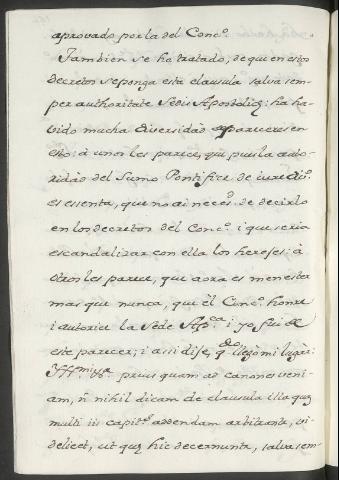 aprovado por la del Conc.º
Tambien se ha tratado, de que en estos
decretos se ponga esta clausula salva sem-
per authoritate Sedis Apostolicę: ha ha-
bido mucha diversidad de pareceres en
esto: à unos les parece, que pues la auto-
ridad del Sumo Pontifice de iure div.º
es essenta, que no ai neces.d de decirlo
en los decretos del Conc.º i que seria
escandalizar con ella los hereses: à
otros les parece, que aora es menester
mas que nunca, que el Conc.º honre
i autorice la Sede App.ca i yo fui de
este parecer; i assi dise, q.do llegò mi lugar:
Ill.mi prius quam ad canones veni-
am, ñ nihil dicam de clausula illa quę
multi iis capit.s addendam arbitrantr, vi-
delicet, ut quę hic decernuntr, salva sem-